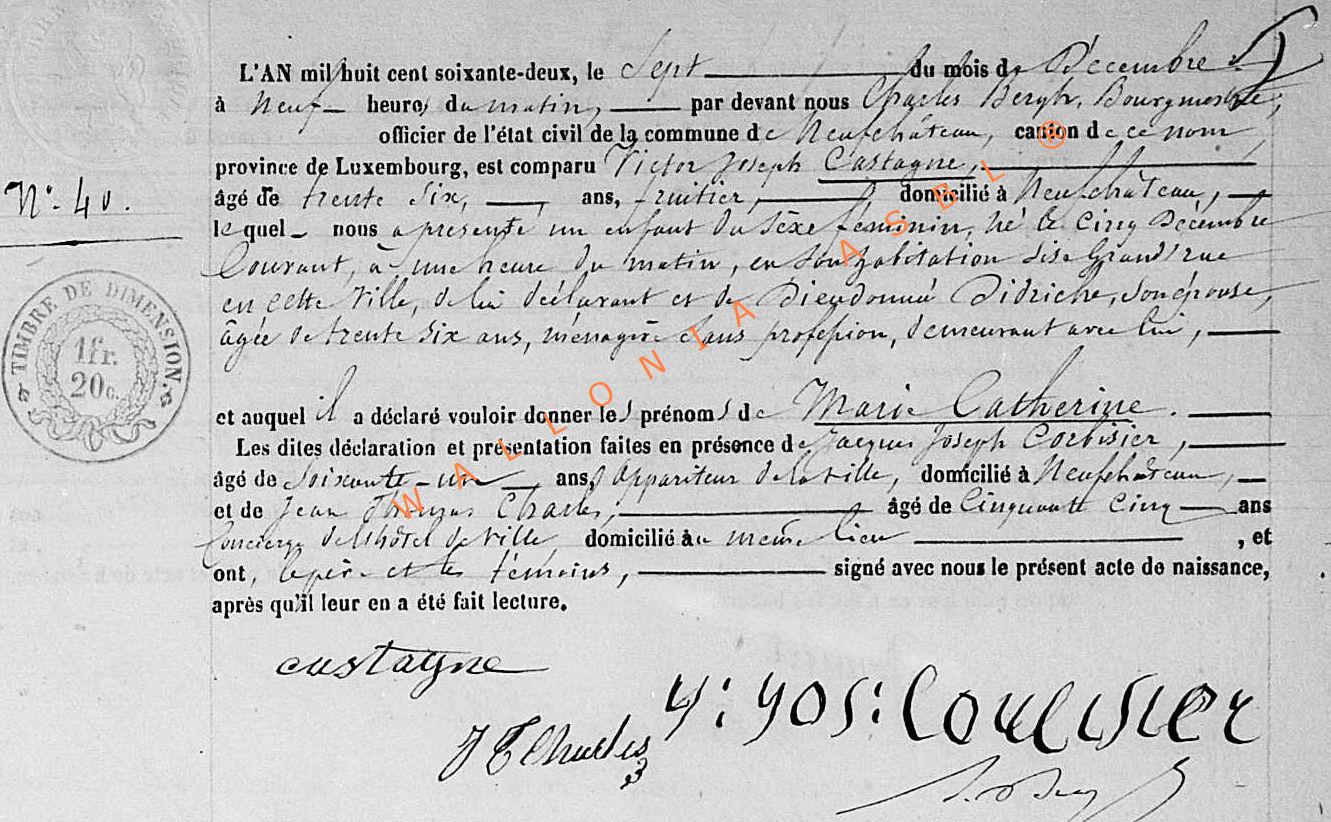 L'AN mil huit cent soixante-deux, le Sept du mois de Décembre
à Neuf heures du matin, par devant nous Charles Bergh, Bourgmestre,
officier de l'état civil de la commune de Neufchâteau, canton de ce nom
province de Luxembourg, est comparu Victor Joseph Castagne,
N° 40.
âgé de trente six, ans, fruitier, domicilié à Neufchâteau,
lequel nous a présenté un enfant du sexe féminin, né le Cinq Décembre
Courant, à une heure du matin, en son habitation sise Grand'rue
en cette Ville, de lui déclarant et de Dieudonné Didriche, son épouse,
âgée de trente six ans, ménagère sans profession, demeurant avec lui,
TIMBRE DE DIMENSION.
1 fr.
20 c.
et auquel il a déclaré vouloir donner les prénoms de Marie Catherine.
Les dites déclaration et présentation faites en présence de Jacques Joseph Corbisier,
âgé de Soixante-un ans, Appariteur de la ville, domicilié à Neufchâteau,
et de Jean Thomas Charles, âgé de Cinquante Cinq ans
Concierge de l'hôtel de Ville, domicilié au même lieu, et
ont, le père et les témoins, signé avec nous le présent acte de naissance,
après qu'il leur en a été fait lecture.
castagne
J T Charles
WALLONIA ASBL ®